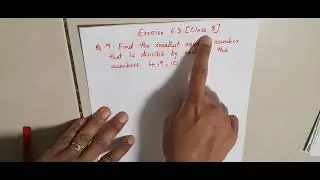 Exercise 6.3 [Class 8]
Q.9: Find the smallest number
that is divisible by the
numbers 4, 9, 10